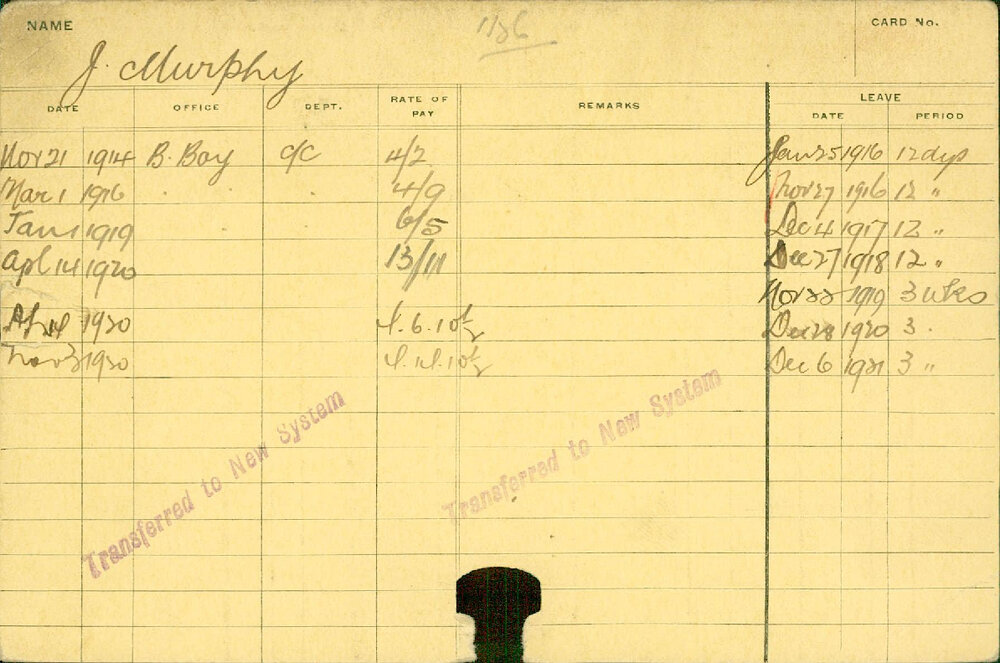 NAME J. Murphy 1186 CARD No.
DATE OFFICE DEPT. RATE OF PAY REMARKS LEAVE
DATE PERIOD
Nov 21 1914 B. Boy C/C 4/2 Jan 25 1916 12 dys
Mar 1 1916 . . 4/9 Nov 27 1916 12 "
Jan 1 1919 6/5 Dec 4 1917 12 "
Apl 14 1920 13/11 Dec 27 1918 12 "
Nov 22 1919 3 wks
1920 1.6.10½ Dec 28 1920 3 .
Nov 3 1920 Dec 6 1921 3 "
Transferred to New System
Transferred to New System